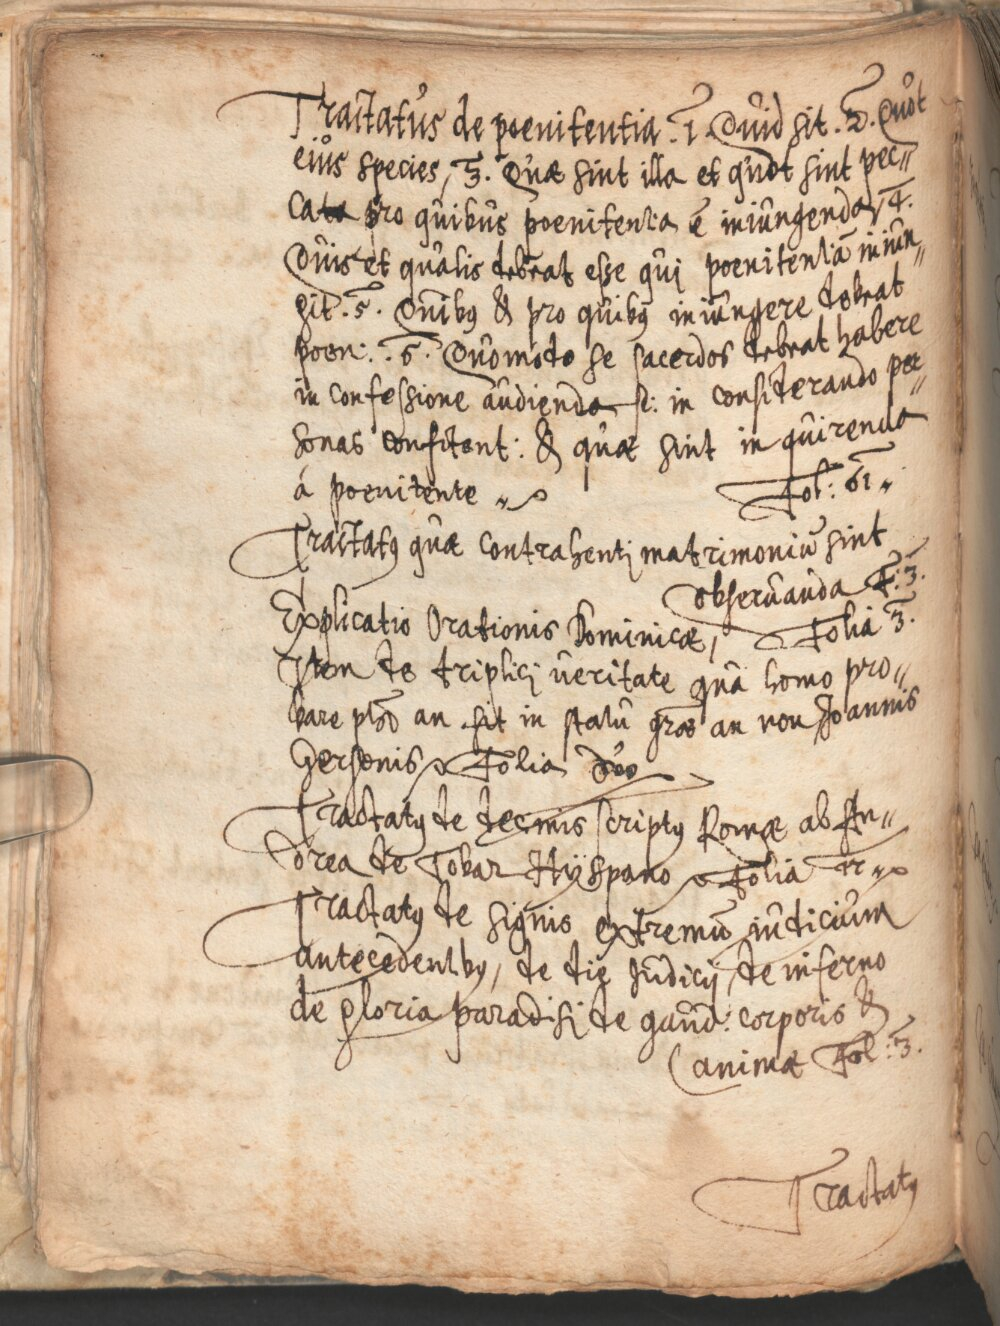 Tractatus de poenitentia .1. Quid sit .2. Quot
eius species, 3. Quæ sint illa et quot sint pec„
cata pro quibus poenitentia ē iniungenda, 4.
Quis et qualis debeat esse qui poenitentiā iniun„
git .5. Quibꝰ & pro quibꝰ iniungere debeat
poen: .6. Quomodo se sacerdos debeat habere
in confessione audienda s: in considerando per„
sonas confitent: & quæ sint inquirenda
á poenitente „
Fol: 61 „
Tractatꝰ quæ contrahenti matrimoniū sint
observanda F: 3.
Explicatio Orationis Dominicæ, Folia 3.
Item de triplici veritate quā homo pro„
bare an sit in statu grāe an non Joannis
Gersonis Folia duo
Tractatꝰ de decimis scriptꝰ Romæ ab An„
drea de Tobar Hyspano Folia „
Tractatꝰ de signis extremū iudicium
antecedentibꝰ, de die Judicij, de inferno
de gloria paradisi de gaud: corporis &
animæ Fol: 3.
Tractatꝰ